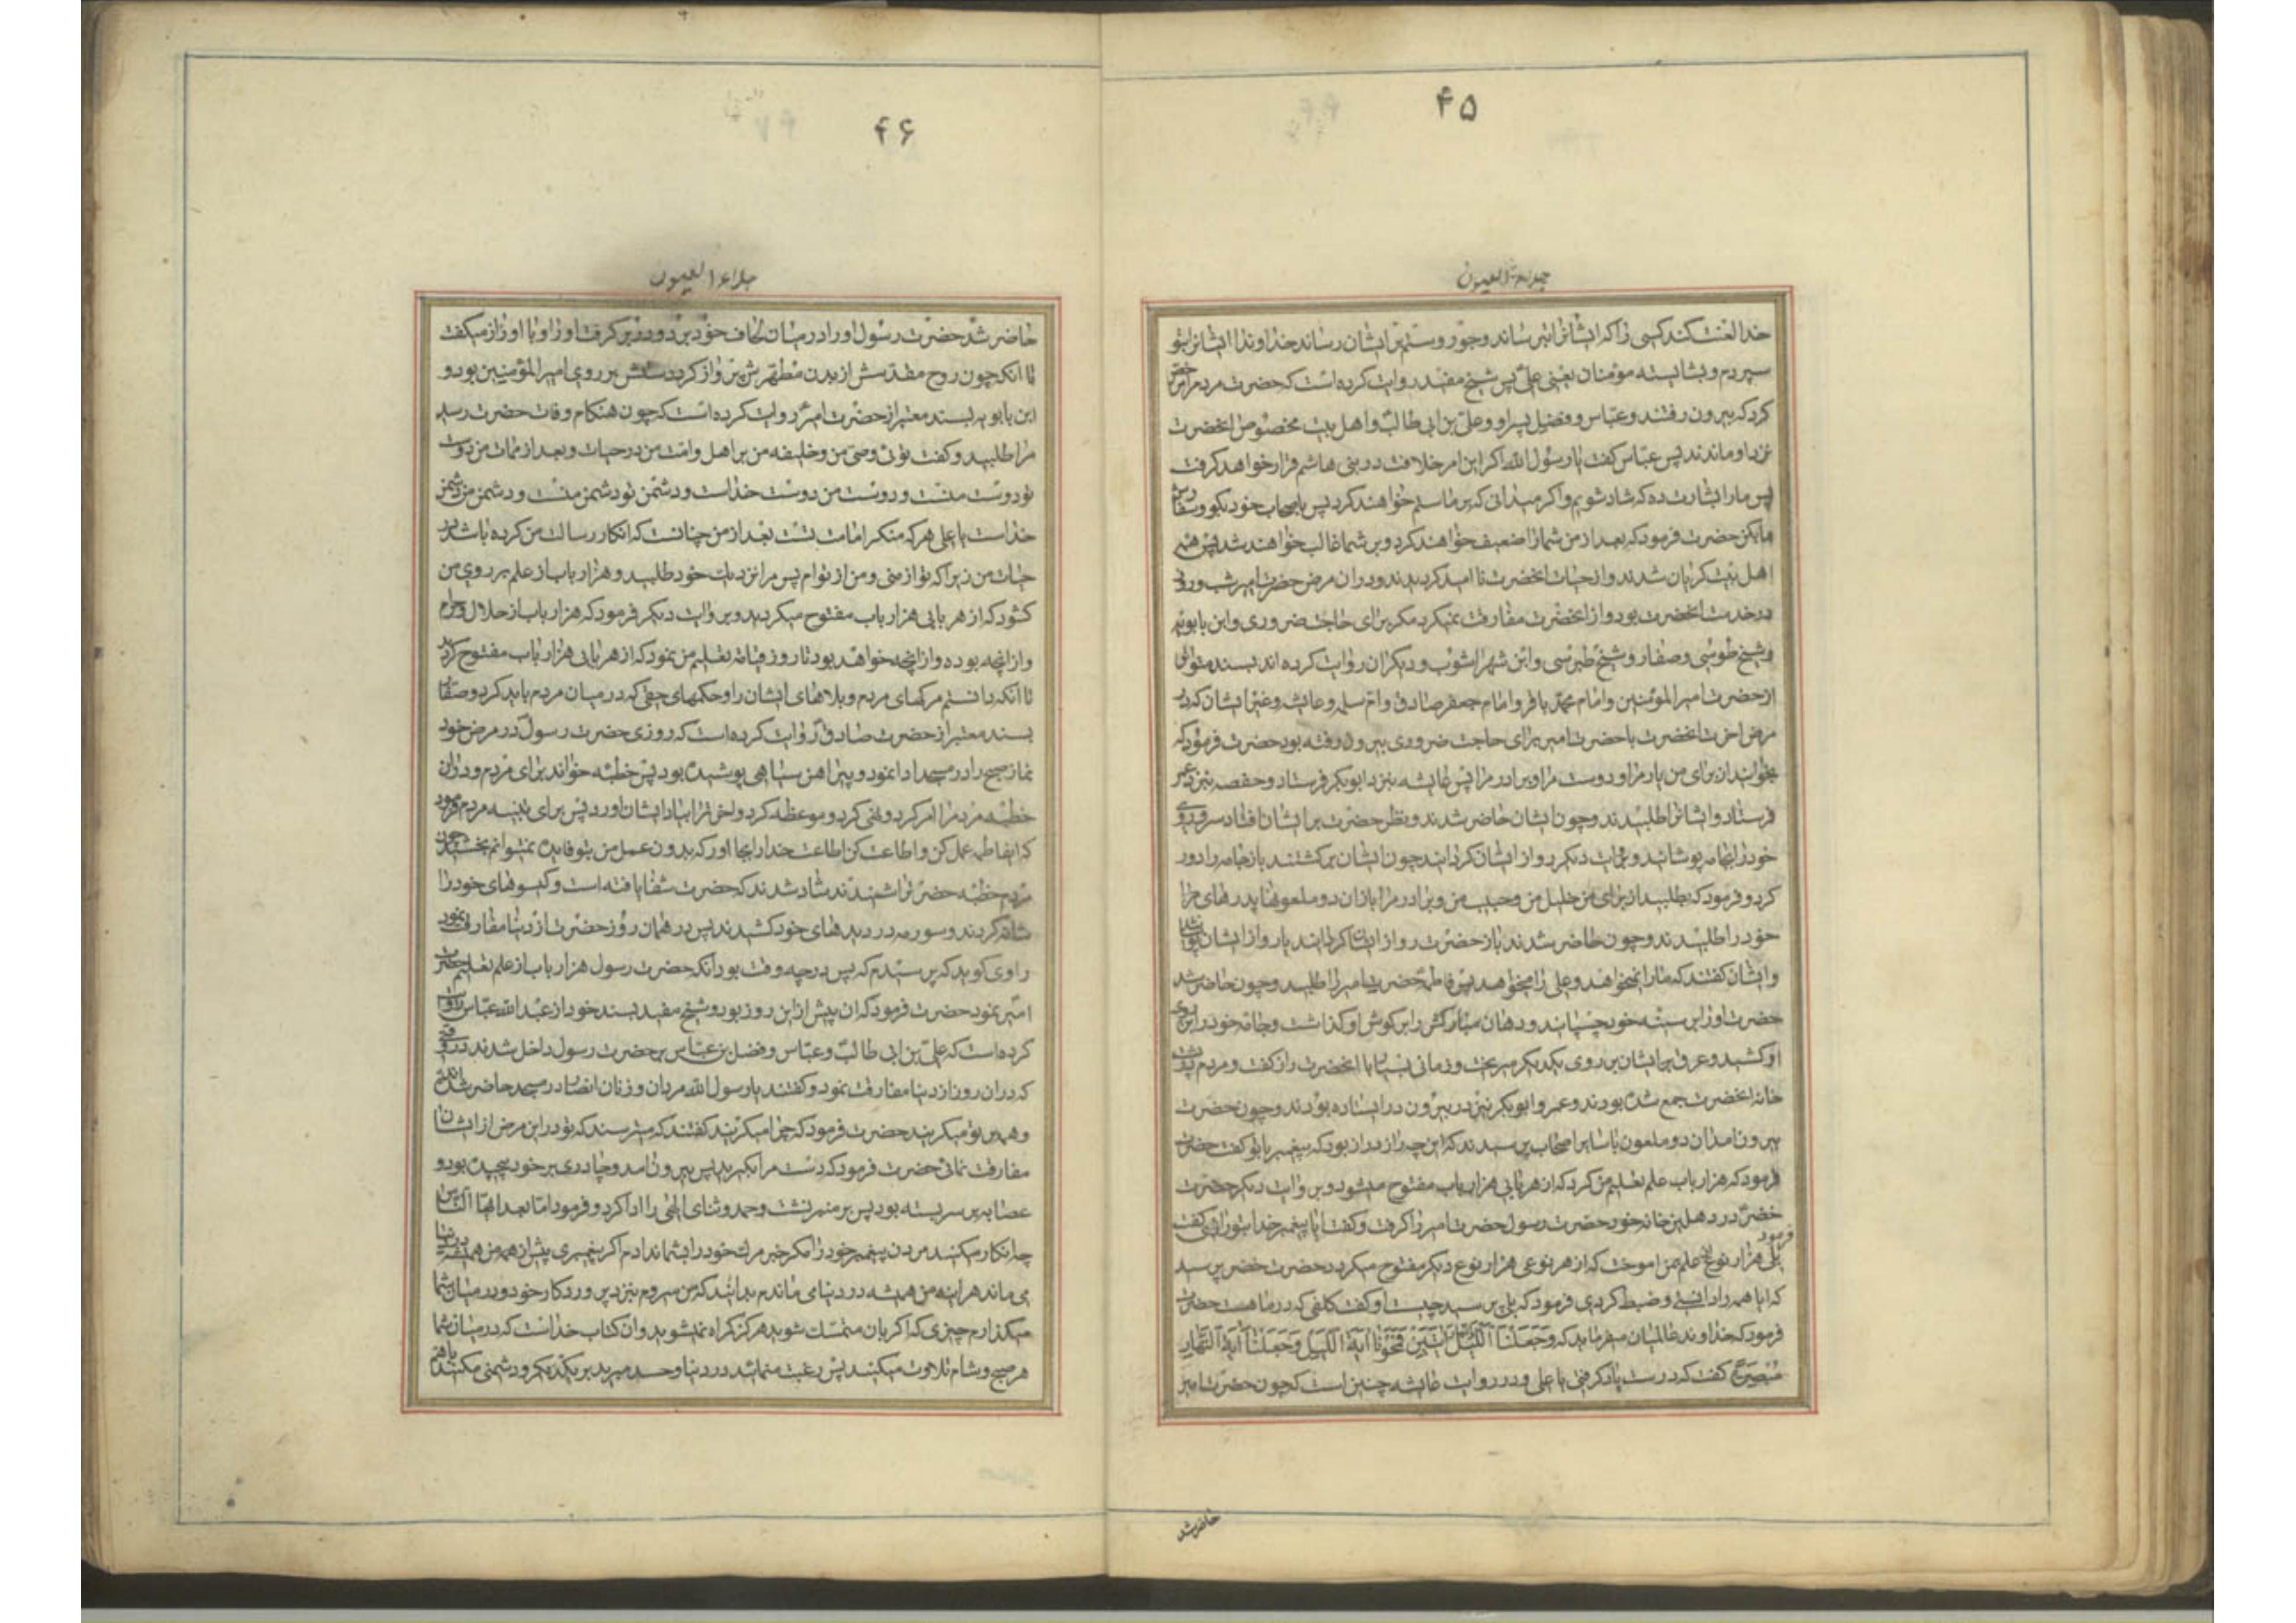 ۴۵
جلاء العیون
خدا لعنت کند کسی را که ایشانرا بترساند و جور و ستم بر ایشان رساند خداوندا ایشانرا بتو
سپردم و بشایسته مؤمنان یعنی علی پس شیخ مفید روایت کرده است که حضرت مردم را مرخص
کرد که بیرون رفتند و عباس و فضل پسر او و علی بن ابی طالب و اهل بیت مخصوص انحضرت
نزد او ماندند پس عباس گفت یا رسول الله اگر این امر خلافت در بنی هاشم قرار خواهد گرفت
پس ما را بشارت ده که شاد شویم و اگر میدانی که بر ما ستم خواهند کرد پس باصحاب خود نکو و سفارش
ما بکن حضرت فرمود که بعد از من شما را ضعیف خواهند کرد و بر شما غالب خواهند شد پس همه
اهل بیت گریان شدند و از حیات انحضرت ناامید گردیدند و در ان مرض حضرت امیر شب و روز
در خدمت انحضرت بود و از انحضرت مفارقت نمیکرد مگر برای حاجت ضروری و ابن بابویه
و شیخ طوسی و صفار و شیخ طبرسی و ابن شهر اشوب و دیگران روایت کرده اند بسند متواتر
از حضرت امیر المؤمنین و امام محمد باقر و امام جعفر صادق و ام سلمه و عایشه و غیر ایشان که در
مرض اخر انحضرت با حضرت امیر برای حاجت ضروری بیرون رفته بود حضرت فرمود که
بخوانید از برای من یار مرا و دوست مرا و برادر مرا پس عایشه بنزد ابوبکر فرستاد و حفصه بنزد عمر
فرستاد و ایشانرا طلبیدند و چون ایشان حاضر شدند و نظر حضرت بر ایشان افتاد سر و روی
خود را بجامه پوشانید و بروایت دیگر رو از ایشان گردانید چون ایشان برگشتند باز جامه را دور
کرد و فرمود که بطلبید از برای من خلیل من و حبیب من و برادر مرا باز ان دو ملعونها پدرهای
خود را طلبیدند و چون حاضر شدند باز حضرت رو از ایشان گردانید
و ایشان گفتند که ما را نمیخواهد و علی را میخواهد پس فاطمه حضرت امیر را طلبید و چون حاضر شد
حضرت او را بر سینه خود چسپانید و دهان مبارکش را بر گوش او گذاشت و جامه خود را بر روی
او کشید و عرق بر ایشان بر روی یکدیگر میریخت و زمانی بسیار با انحضرت راز گفت و مردم در پشت
خانه انحضرت جمع شده بودند و عمر و ابوبکر نیز در بیرون در ایستاده بودند و چون حضرت
بیرون امد ان دو ملعون با سایر اصحاب پرسیدند که این چه راز دراز بود که پیغمبر با تو گفت حضرت
فرمود که هزار باب علم تعلیم من کرد که از هر بابی هزار باب مفتوح میشود و بروایت دیگر حضرت
خضر در دهلیز خانه خود حضرت رسول حضرت امیر را گرفت و گفت ایا پیغمبر خدا بتو رازی گفت فرمود
بلی هزار نوع علم بمن اموخت که از هر نوعی هزار نوع دیگر مفتوح میگردد حضرت خضر پرسید
که ایا همه را دانستی و ضبط کردی فرمود که بلی پرسید چیست او گفت کلفی که در ماهست حضرت
فرمود که خداوند عالمیان میفرماید که وَجَعَلْنَا اللَّیْلَ وَالنَّهَارَ آیَتَیْنِ فَمَحَوْنَا آیَةَ اللَّیْلِ وَجَعَلْنَا آیَةَ النَّهَارِ
مُبْصِرَةً گفت که درست یاد گرفتی یا علی و در روایت عایشه چنین است که چون حضرت امیر
حاضر شد
۴۶
جلاء العیون
حاضر شد حضرت رسول او را در میان لحاف خود برد و در بر گرفت او را و با او راز میگفت
تا انکه چون روح مقدسش از بدن مطهرش پرواز کرد دستش بر روی امیر المؤمنین بود و
ابن بابویه بسند معتبر از حضرت امیر روایت کرده است که چون هنگام وفات حضرت رسید
مرا طلبید و گفت توئی وصی من و خلیفه من بر اهل و امت من در حیات و بعد از ممات من دوست
تو دوست منست و دوست من دوست خداست و دشمن تو دشمن منست و دشمن من دشمن
خداست یا علی هر که منکر امامت تست بعد از من چنانست که انکار رسالت من کرده باشد در
حیات من زیرا که تو از منی و من از توام پس مرا نزدیک خود طلبید و هزار باب از علم بر روی من
گشود که از هر بابی هزار باب مفتوح میگردید و بروایت دیگر فرمود که هزار باب از حلال و حرام
و از انچه بوده و از انچه خواهد بود تا روز قیامت تعلیم من نمود که از هر بابی هزار باب مفتوح گردید
تا انکه دانستم مرگهای مردم و بلاهای ایشان را و حکمهای حقی که در میان مردم باید کرد و صفار
بسند معتبر از حضرت صادق روایت کرده است که روزی حضرت رسول در مرض خود
نماز صبح را در مسجد ادا نمود و پیراهن سیاهی پوشیده بود پس خطبه خواند برای مردم و در ان
خطبه مردم را امر کرد و نهی کرد و موعظه کرد و اخرت را بیاد ایشان اورد پس برای تنبیه مردم فرمود
که ایفاطمه عمل کن و اطاعت کن اطاعت خدا را بجا اور که بدون عمل من بتو فایده نمیتوانم بخشید چون
مردم خطبه حضرت را شنیدند شاد شدند که حضرت شفا یافته است و گیسوهای خود را
شانه کردند و سورمه در دیدهای خود کشیدند پس در همان روز حضرت از دنیا مفارقت نمود
راوی گوید که پرسیدم که پس در چه وقت بود انکه حضرت رسول هزار باب از علم تعلیم حضرت
امیر نمود حضرت فرمود که ان پیش از این روز بود و شیخ مفید بسند خود از عبد الله عباس روایت
کرده است که علی بن ابی طالب و عباس و فضل بن عباس بر حضرت رسول داخل شدند در وقتی
که در ان روز از دنیا مفارقت نمود و گفتند یا رسول الله مردان و زنان انصار در مسجد حاضر شده اند
و همه بر تو میگریند حضرت فرمود که چرا میگریند گفتند که میترسند که تو در این مرض از ایشان
مفارقت نمائی حضرت فرمود که دست مرا بگیرید پس بیرون امد و چادری بر خود پیچیده بود و
عصابه بر سر بسته بود پس بر منبر نشست و حمد و ثنای الهی را ادا کرد و فرمود اما بعد ایها الناس
چه انکار میکنید مردن پیغمبر خود را مگر خبر مرگ خود را بشما ندادم اگر پیغمبری پیش از من همیشه در دنیا
می ماند هراینه من همیشه در دنیا می ماندم بدانید که من میروم بنزد پروردگار خود و در میان شما
میگذارم چیزی که اگر بان متمسک شوید هرگز گمراه نمیشوید و ان کتاب خداست که در میان شما
هر صبح و شام تلاوت میکنید پس رغبت منمائید در دنیا و حسد مبرید بر یکدیگر و دشمنی مکنید با هم